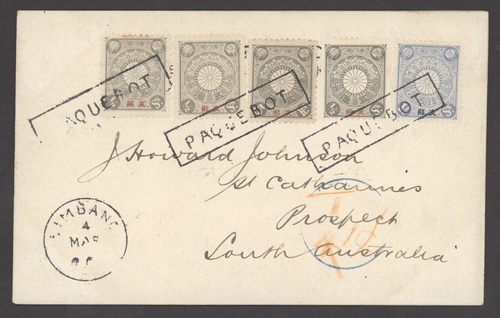 支那
支那
支那
支那
支那
PAQUEBOT
PAQUEBOT
PAQUEBOT
J Howard Johnson
St Catharines
Prospect
South Australia
4
MAR